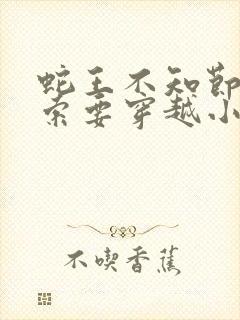 蛇王不知節
索要穿越小
不喫香蕉